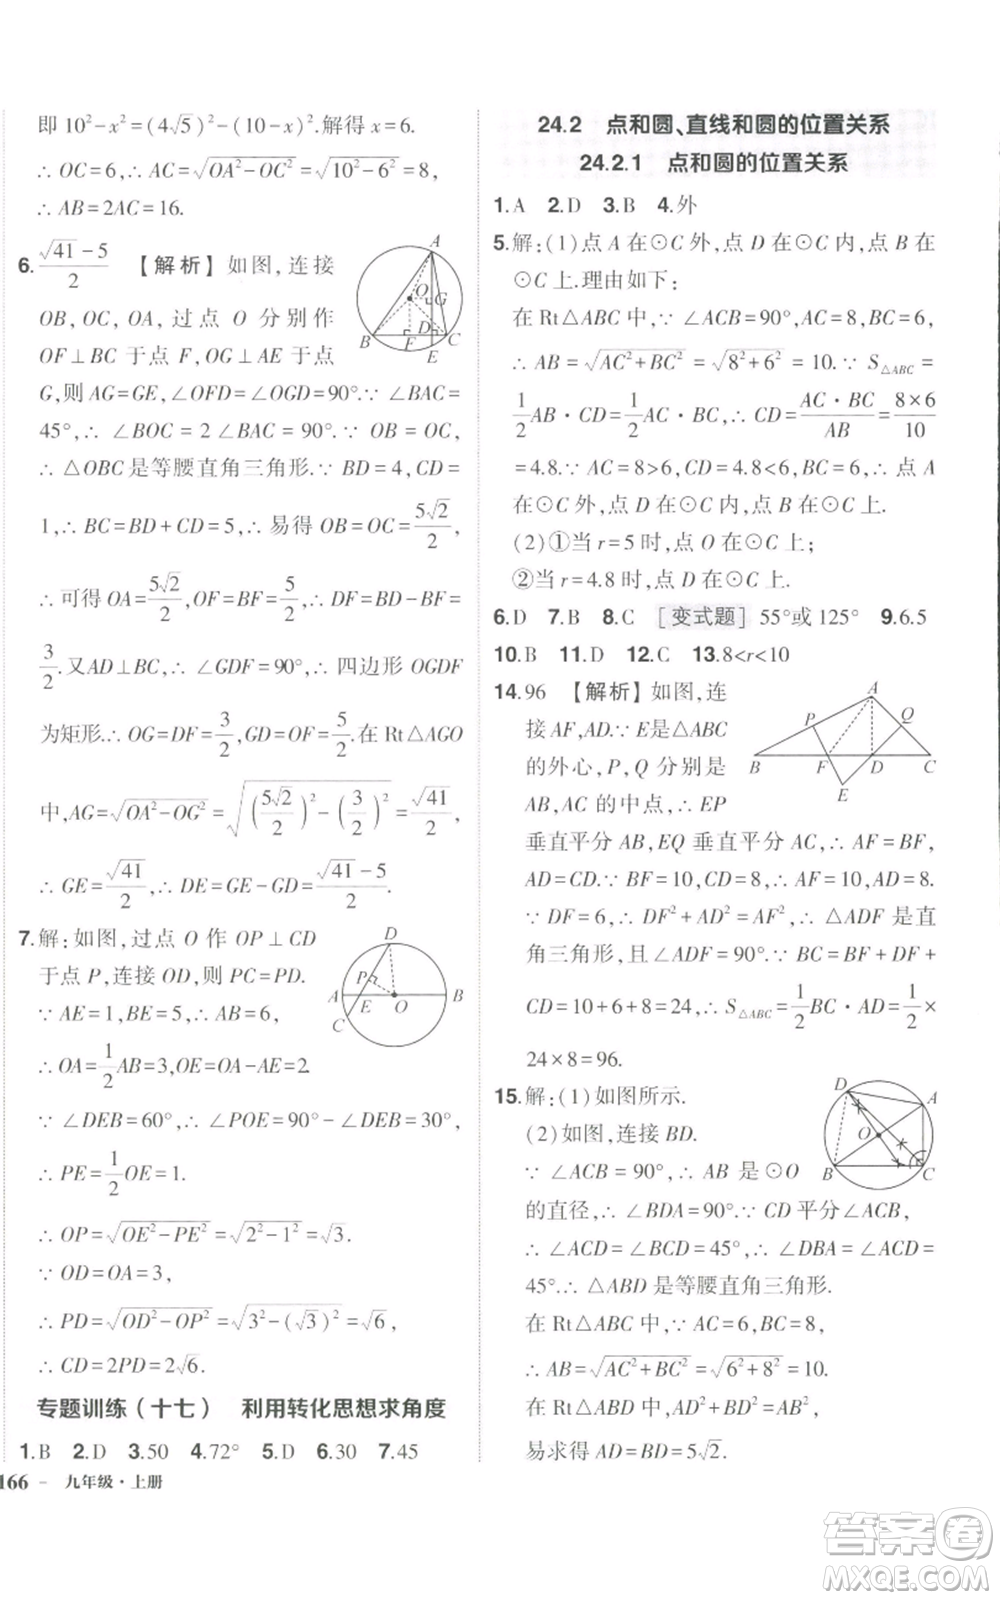 即 10²-x²=(4√5)²-(10-x)².解得 x=6.
∴ OC=6,∴ AC=√(OA²-OC²)=√(10²-6²)=8,
∴ AB=2AC=16.
6. (√41-5)/2 【解析】如图,连接
OB,OC,OA,过点 O 分别作
OF⊥BC 于点 F,OG⊥AE 于点
G,则 AG=GE,∠OFD=∠OGD=90°.∵ ∠BAC=
45°,∴ ∠BOC=2∠BAC=90°.∵ OB=OC,
∴ △OBC 是等腰直角三角形.∵ BD=4,CD=
1,∴ BC=BD+CD=5,∴ 易得 OB=OC=5√2/2,
∴ 可得 OA=5√2/2,OF=BF=5/2,∴ DF=BD-BF=
3/2.又 AD⊥BC,∴ ∠GDF=90°,∴ 四边形 OGDF
为矩形.∴ OG=DF=3/2,GD=OF=5/2.在 Rt△AGO
中,AG=√(OA²-OG²)=√((5√2/2)²-(3/2)²)=√41/2,
∴ GE=√41/2,∴ DE=GE-GD=(√41-5)/2.
A
O
G
B
F
D
C
E
7.解:如图,过点 O 作 OP⊥CD
于点 P,连接 OD,则 PC=PD.
∵ AE=1,BE=5,∴ AB=6,
∴ OA=1/2AB=3,∴ OE=OA-AE=2.
∵ ∠DEB=60°,∴ ∠POE=90°-∠DEB=30°,
∴ PE=1/2OE=1.
∴ OP=√(OE²-OP²)=√(2²-1²)=√3.
∵ OD=OA=3,
∴ PD=√(OD²-OP²)=√(3²-(√3)²)=√6,
∴ CD=2PD=2√6.
D
P
A
E
O
B
C
专题训练(十七) 利用转化思想求角度
1.B 2.D 3.50 4.72° 5.D 6.30 7.45
166 - 九年级·上册
24.2 点和圆、直线和圆的位置关系
24.2.1 点和圆的位置关系
1.A 2.D 3.B 4.外
5.解:(1)点 A 在⊙C 外,点 D 在⊙C 内,点 B 在
⊙C 上.理由如下:
在 Rt△ABC 中,∵ ∠ACB=90°,AC=8,BC=6,
∴ AB=√(AC²+BC²)=√(8²+6²)=10.∵ S△ABC=
1/2AB·CD=1/2AC·BC,∴ CD=(AC·BC)/AB=(8×6)/10
=4.8.∵ AC=8>6,CD=4.8<6,BC=6,∴ 点 A
在⊙C 外,点 D 在⊙C 内,点 B 在⊙C 上.
(2)①当 r=5 时,点 O 在⊙C 上;
②当 r=4.8 时,点 D 在⊙C 上.
6.D 7.B 8.C [变式题] 55°或 125° 9.6.5
10.B 11.D 12.C 13.8<r<10
14.96 【解析】如图,连
接 AF,AD.∵ E是△ABC
的外心,P,Q 分别是
AB,AC 的中点,∴ EP
垂直平分 AB,EQ 垂直平分 AC,∴ AF=BF,
AD=CD.∵ BF=10,CD=8,∴ AF=10,AD=8.
∵ DF=6,∴ DF²+AD²=AF²,∴ △ADF 是直
角三角形,且∠ADF=90°.∵ BC=BF+DF+
CD=10+6+8=24,∴ S△ABC=1/2BC·AD=1/2×
24×8=96.
A
P
Q
B
F
D
C
E
15.解:(1)如图所示.
(2)如图,连接 BD.
∵ ∠ACB=90°,∴ AB 是⊙O
的直径,∴ ∠BDA=90°.∵ CD 平分∠ACB,
∴ ∠ACD=∠BCD=45°,∴ ∠DBA=∠ACD=
45°.∴ △ABD 是等腰直角三角形.
在 Rt△ABC 中,∵ AC=8,BC=6,
∴ AB=√(AC²+BC²)=√(6²+8²)=10.
在 Rt△ABD 中,∵ AD=BD,AB=10,
易求得 AD=BD=5√2.
D
A
O
B
C
答案卷
MXQE.COM